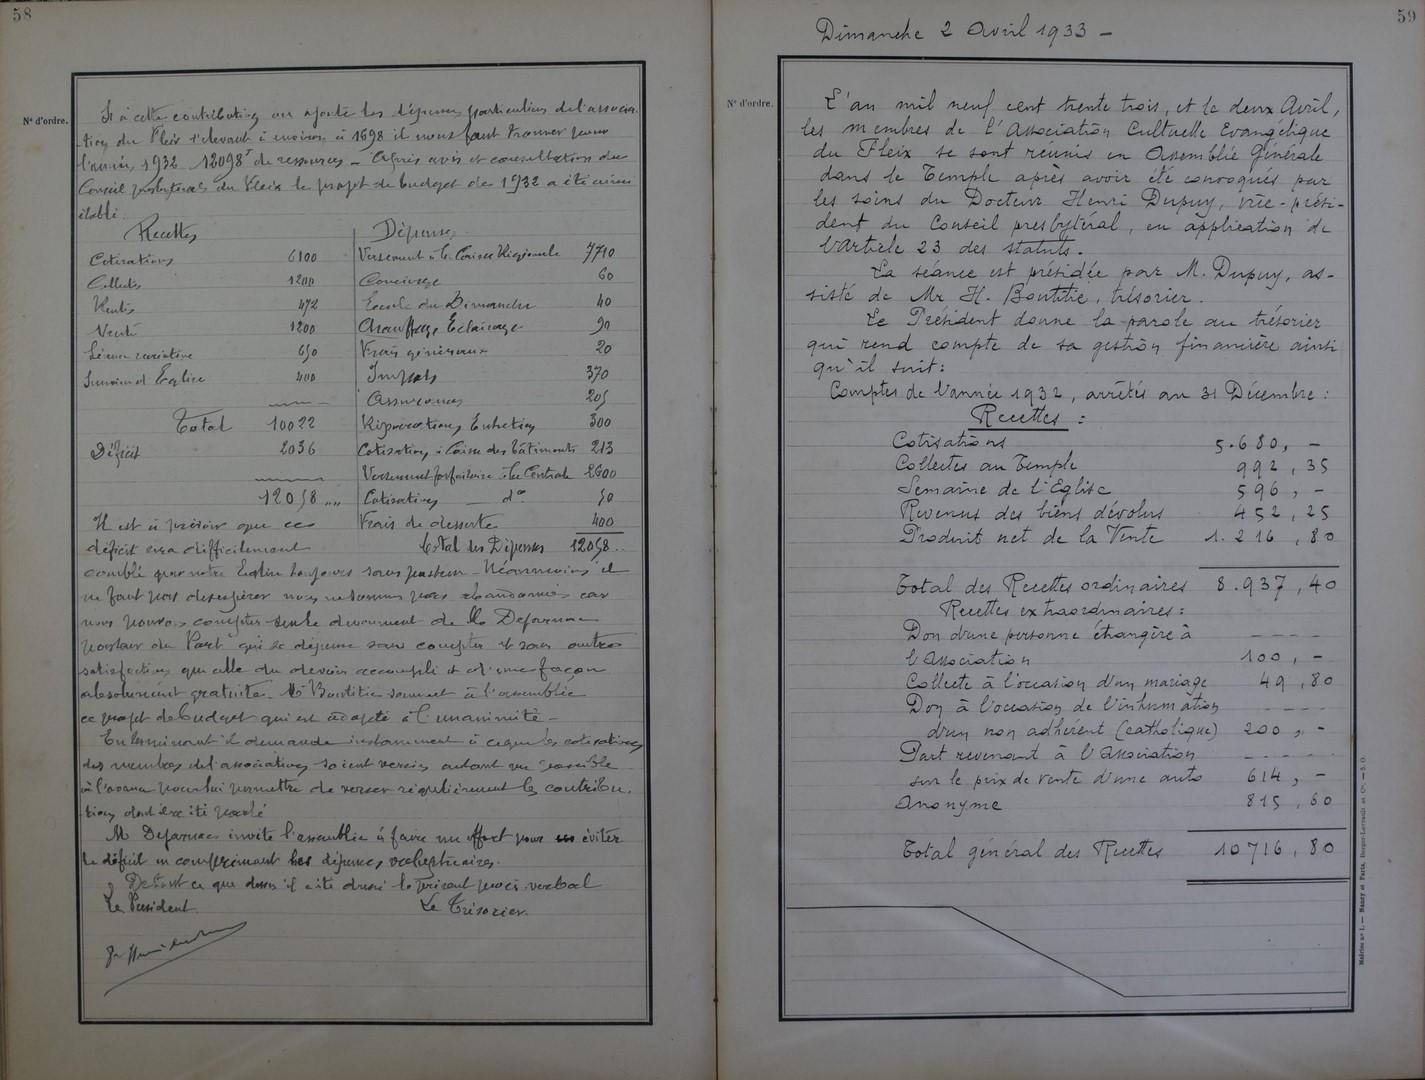 58
N° d'ordre.
Si à cette contribution on ajoute les dépenses particulières de l'associa-
-tion du Fleix s'élevant à environ à 1698 il nous faut trouver pour
l'année 1932 12098 f de ressources - Après avis et consultation du
Conseil presbytéral du Fleix le projet de budget de 1932 a été ainsi
établi.
Recettes
Cotisations 6100
Collectes 1200
Rentes 472
Vente 1200
650
400
Total 10022
Déficit 2036
12058 „„
Dépenses
Versement à la Caisse Régionale 7710
Concierge 60
Ecole du Dimanche 40
Chauffage Eclairage 90
Frais généraux 20
Impots 370
Assurances 205
Réparations Entretien 300
Cotisations à Caisse des bâtiments 213
Versement forfaitaire à la Centrale 2600
Cotisations do 50
Frais de desserte 400
Total des Dépenses 12058
Il est à prévoir que ce
déficit sera difficilement
comblé par notre Eglise toujours sans pasteur - Néanmoins il
ne faut pas desespérer nous ne sommes pas abandonnés car
nous pouvons compter sur le dévouement de Mr Dejarnac
pasteur du Port qui se dépense sans compter et sans autre
satisfaction que celle du devoir accompli et d'une façon
absolument gratuite. Mr Boutitie soumet à l'assemblée
ce projet de budget qui est adopté à l'unanimité -
En terminant il demande instamment à ce que les cotisations
des membres de l'association soient versées autant que possible
à l'avance pour lui permettre de verser régulièrement la contribu-
tion dont il a été parlé
M Dejarnac invite l'assemblée à faire un effort pour éviter
le déficit en comprimant les dépenses
De tout ce que dessus il a été dressé le présent procès verbal
Le Président Le Trésorier.
59
Dimanche 2 Avril 1933 -
N° d'ordre.
L'an mil neuf cent trente trois, et le deux Avril,
les membres de l'Association Cultuelle Evangélique
du Fleix se sont réunis en Assemblée Générale
dans le Temple après avoir été convoqués par
les soins du Docteur Henri Dupuy, vice-prési-
dent du Conseil presbytéral, en application de
l'Article 23 des statuts.
La séance est présidée par M. Dupuy, as-
sisté de Mr H. Boutitie, trésorier.
Le Président donne la parole au trésorier
qui rend compte de sa gestion financière ainsi
qu'il suit:
Comptes de l'année 1932, arrêtés au 31 Décembre:
Recettes:
Cotisations 5.680, -
Collectes au Temple 992,35
Semaine de l'Eglise 596, -
Revenus des biens dévolus 452,25
Produit net de la Vente 1.216,80
Total des Recettes ordinaires 8.937,40
Recettes extraordinaires:
Don d'une personne étrangère à - - - -
l'Association 100, -
Collecte à l'occasion d'un mariage 49,80
Don à l'occasion de l'inhumation - - - -
d'un non adhérent (catholique) 200, -
Part revenant à l'Association - - - -
sur le prix de vente d'une auto 614, -
Anonyme 815,60
Total général des Recettes 10716,80
Mairies n° 1. — Nancy et Paris, Berger-Levrault et Cie. — 5. O.